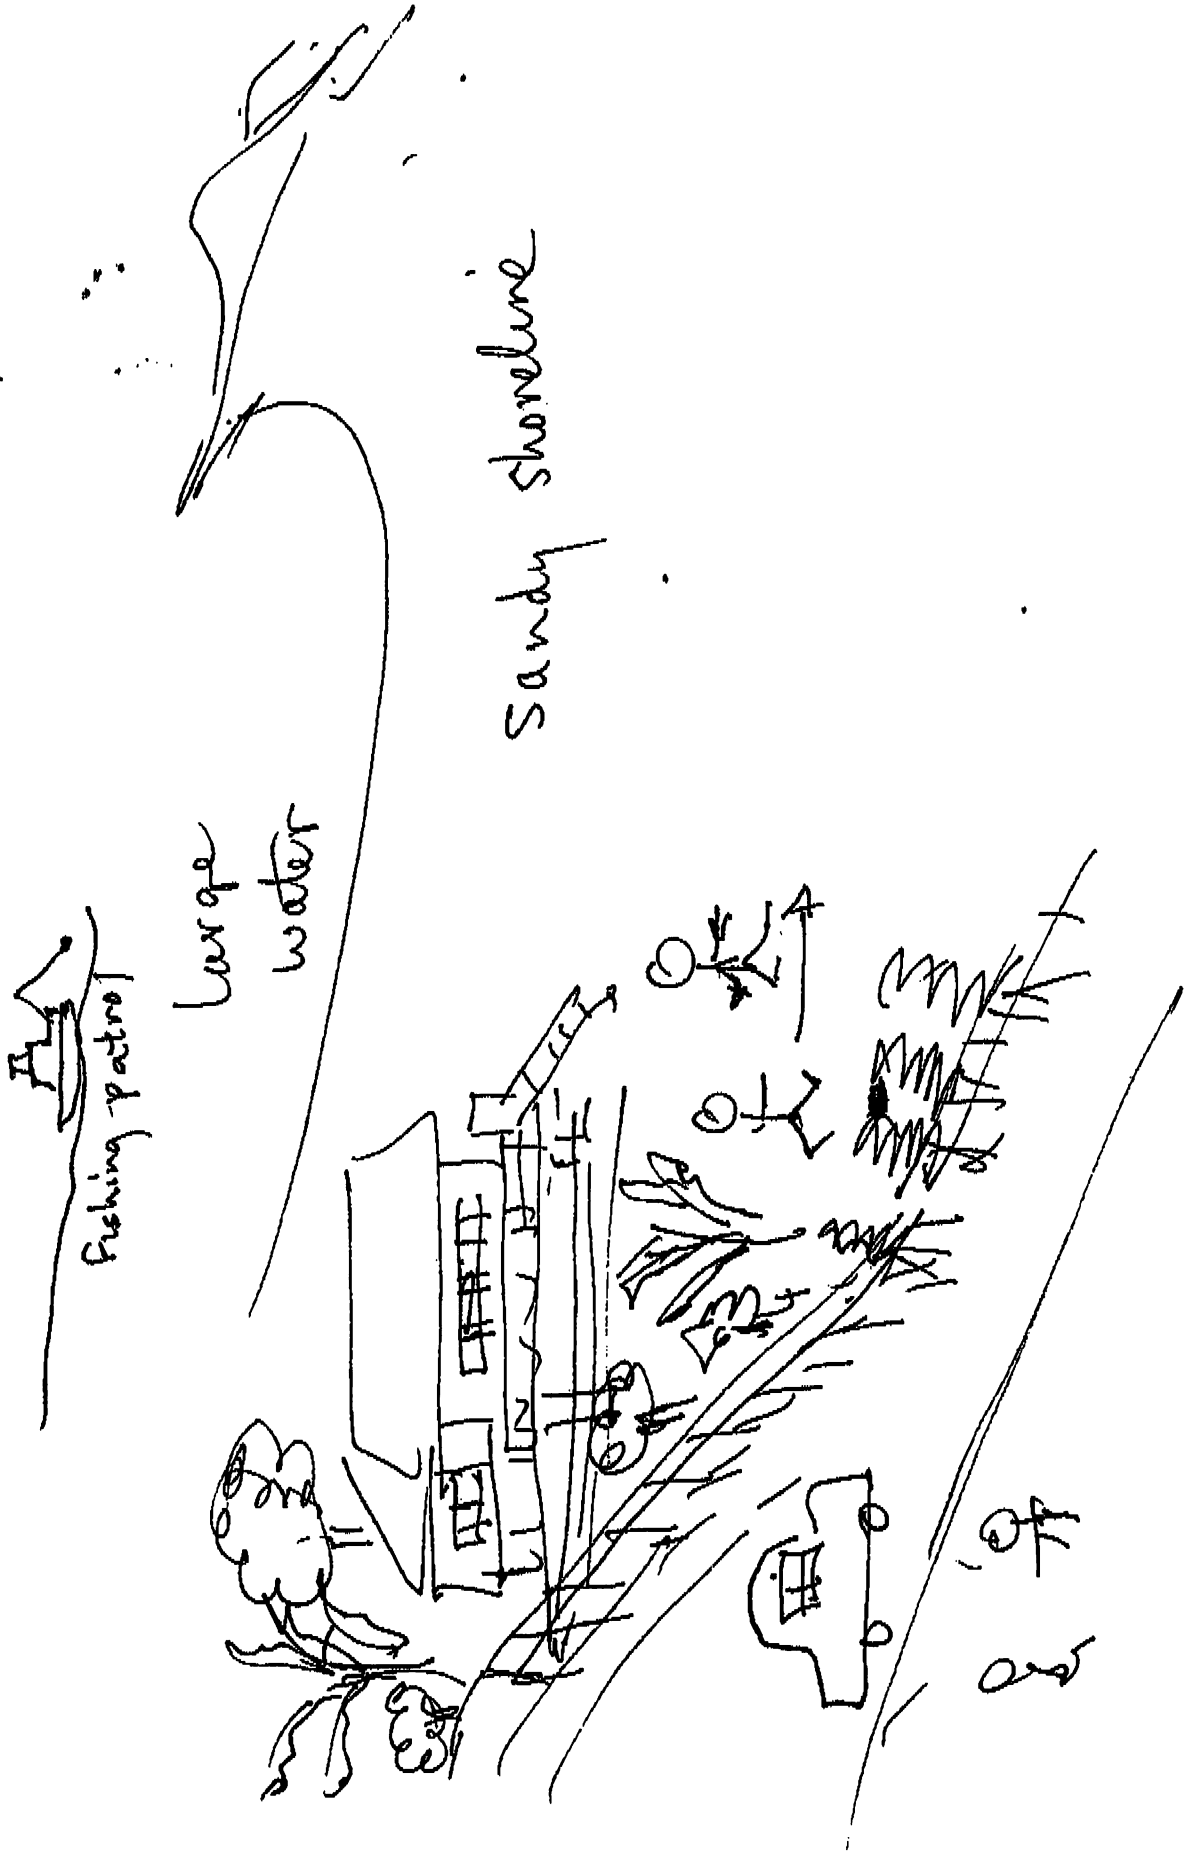 Fishing patrol
Large
water
Sandy shoreline